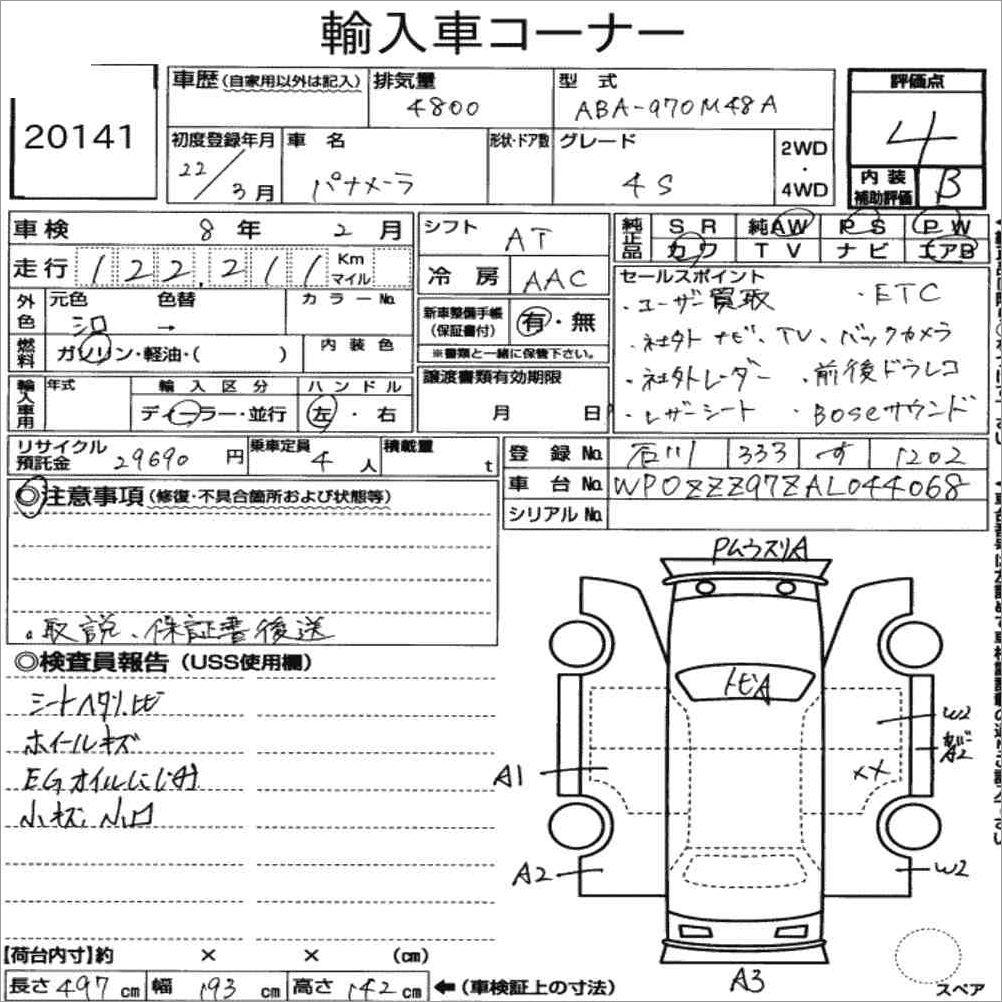 輸入車コーナー
20141
車歴(自家用以外は記入)
排気量
4800
型 式
ABA-970M48A
評価点
4
初度登録年月
22/3月
車 名
パナメーラ
形状・ドア数
グレード
4S
2WD
・
4WD
内装
補助評価
B
車検 8年 2月
走行 122,211 Km
マイル
シフト AT
冷房 AAC
純正品
SR 純AW PS PW
カワ TV ナビ エアB
外色
元色 色替 カラーNo.
シロ →
燃料
ガソリン・軽油・( )
内装色
新車整備手帳
(保証書付)
有・無
※書類と一緒に保管下さい。
セールスポイント
・ユーザー買取 ・ETC
・社外ナビ、TV、バックカメラ
・社外レーダー ・前後ドラレコ
・レザーシート ・BOSEサウンド
輸入車用
年式
輸入区分
ディーラー・並行
ハンドル
左・右
譲渡書類有効期限
月 日
リサイクル
預託金
29690円
乗車定員
4人
積載量
t
登録No.
石川 333 す 1202
車台No.
WP0ZZZ97ZAL044068
シリアルNo.
◎注意事項(修復・不具合箇所および状態等)
・取説、保証書後送
◎検査員報告(USS使用欄)
シートヘタリ、ヒビ
ホイールキズ
EGオイルにじみ
小キズ、小凹
PムウスリA
トビA
A1
A2
W2
A2
XX
W2
A3
スペア
【荷台内寸】約 × × (cm)
長さ 497 cm 幅 193 cm 高さ 142 cm ←(車検証上の寸法)